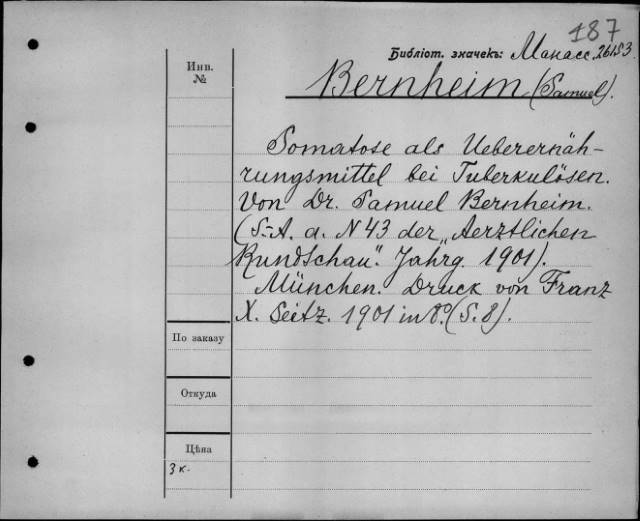 187
Библіот. значекъ: Манасс. 26153
Инв.
№
Bernheim (Samuel).
Somatose als Ueberernäh-
rungsmittel bei Tuberkulösen.
Von Dr. Samuel Bernheim.
(S.-A. a. N 43 der „Aerztlichen
Rundschau". Jahrg. 1901).
München. Druck von Franz
X. Seitz. 1901 in 8°. (S. 8).
По заказу
Откуда
Цѣна
3 к.